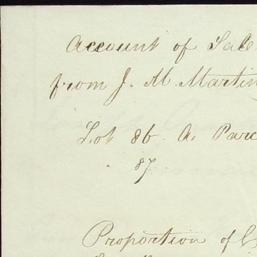 Account of Sale
from J. M. Martin
Lot 86. A. Parc
" 87
Proportion of